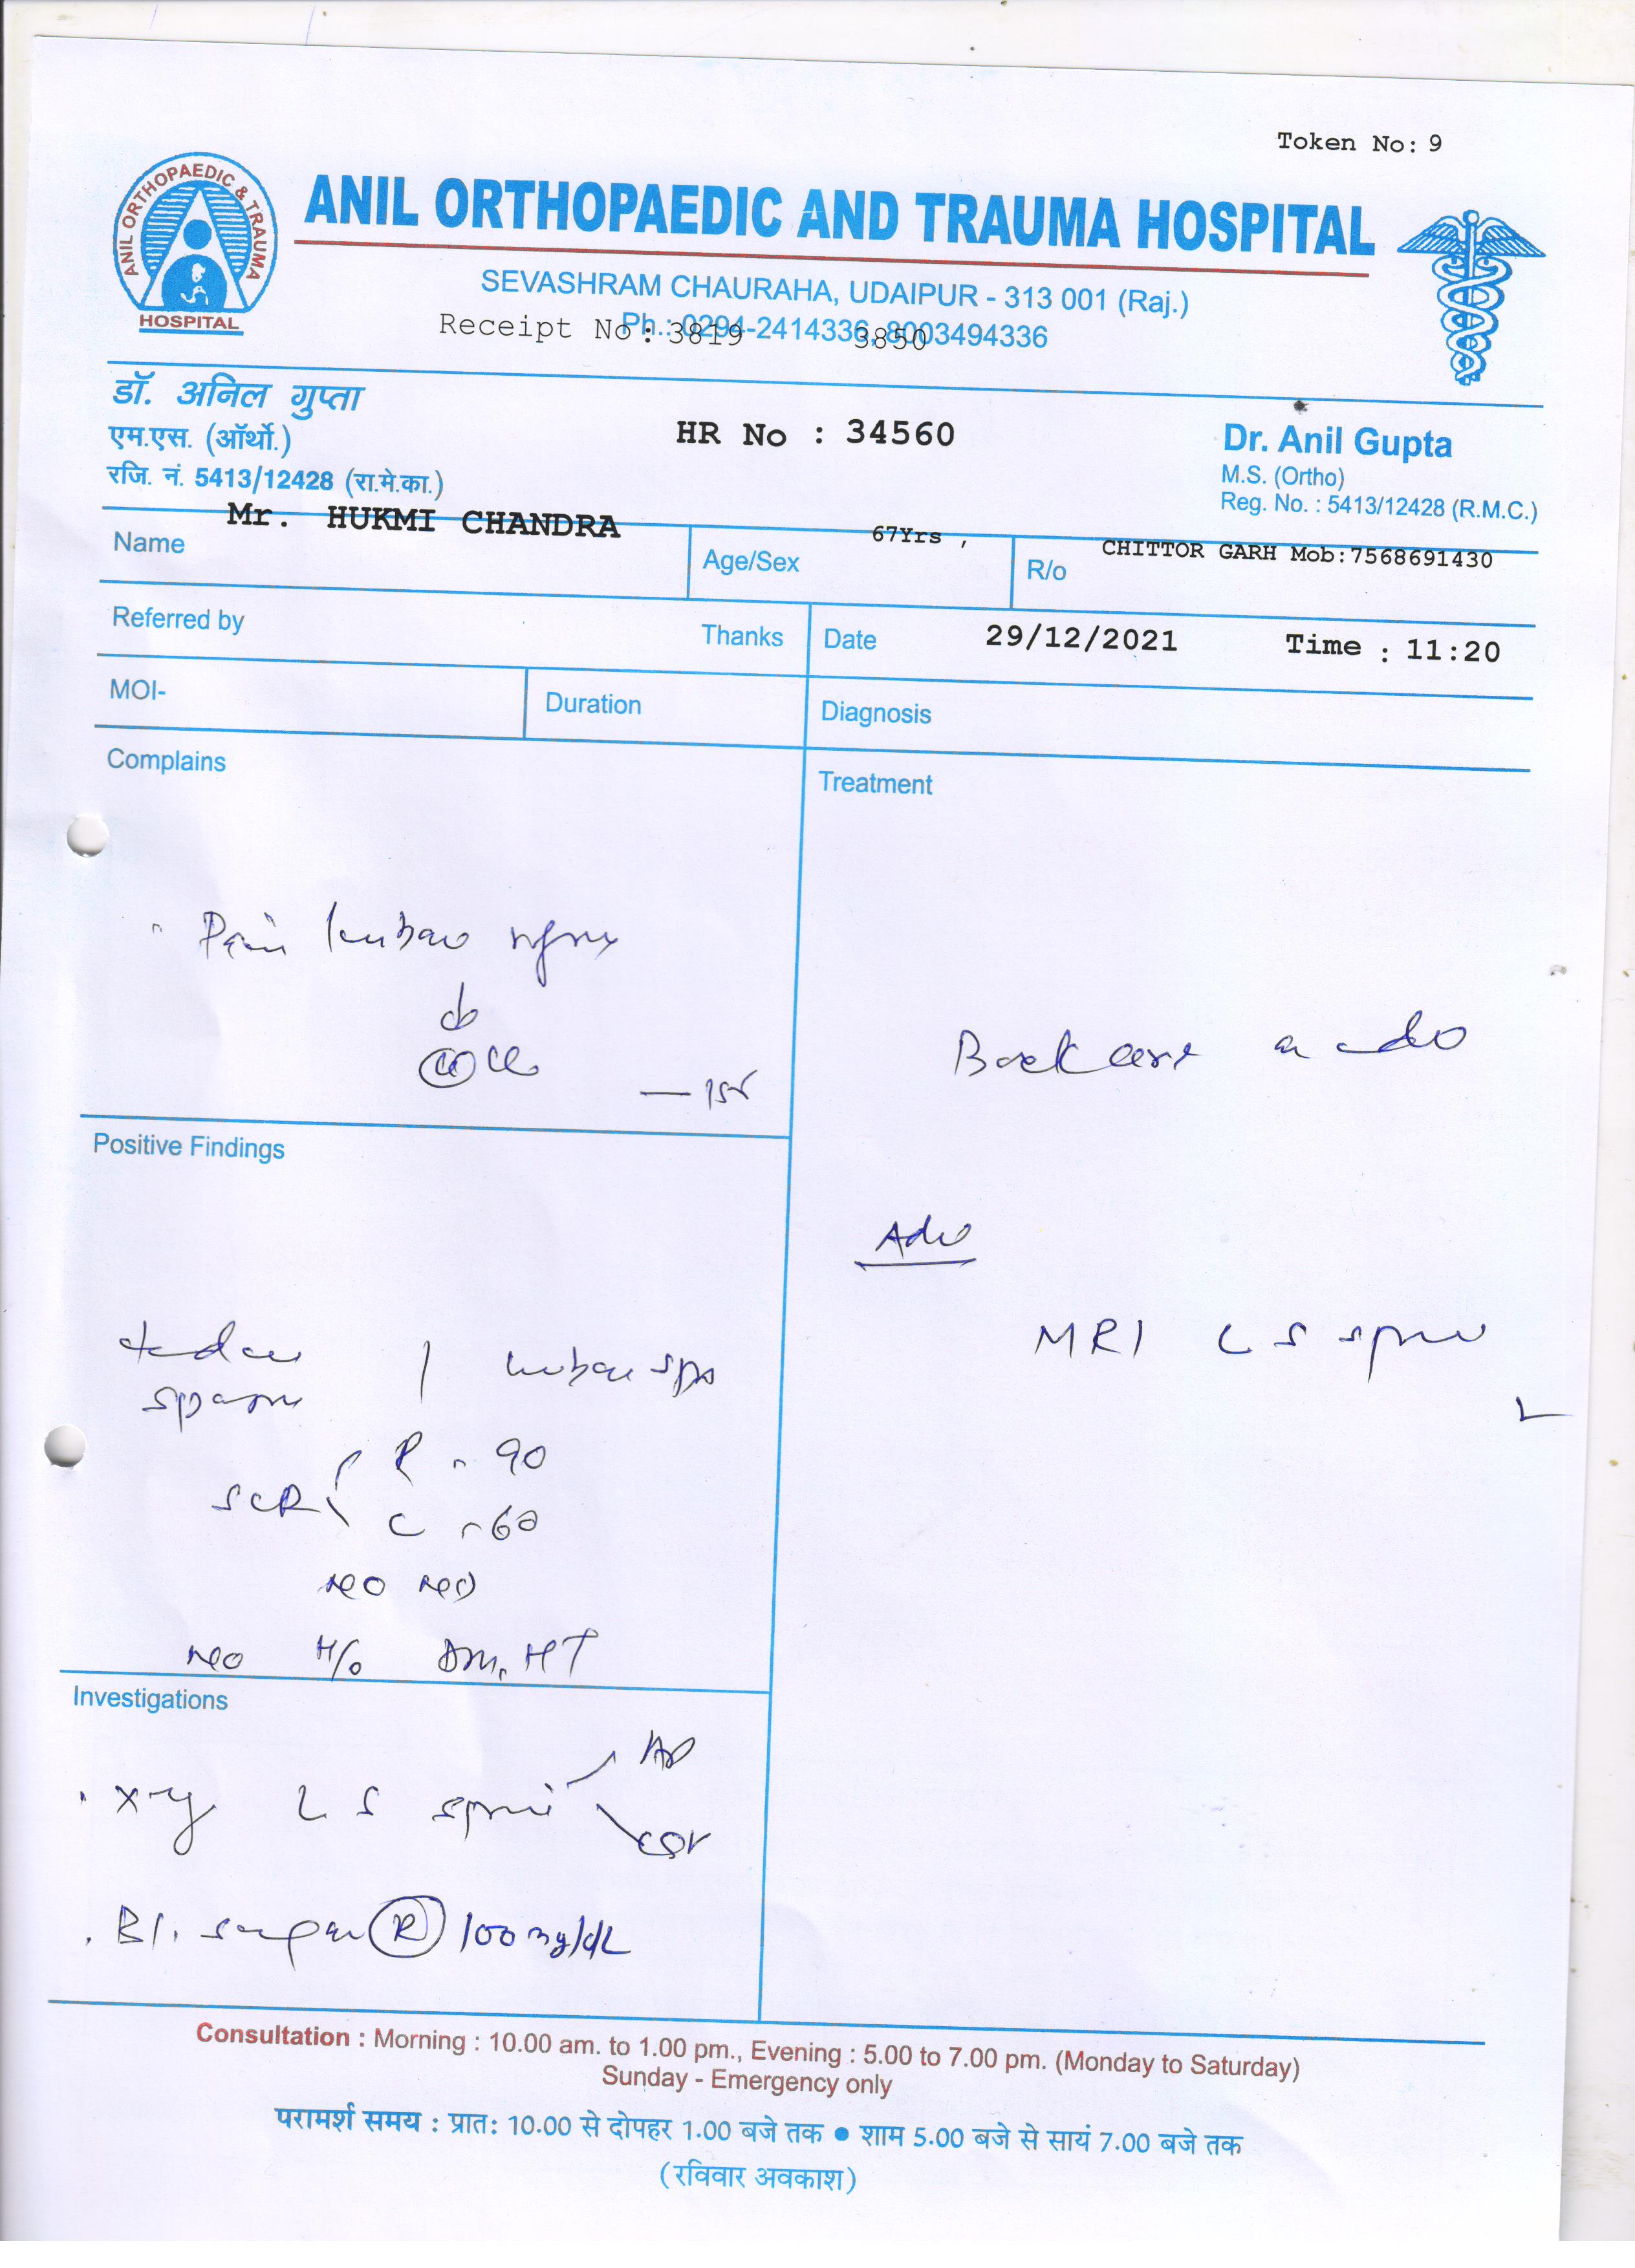 Token No: 9
ANIL ORTHOPAEDIC & TRAUMA
HOSPITAL
ANIL ORTHOPAEDIC AND TRAUMA HOSPITAL
SEVASHRAM CHAURAHA, UDAIPUR - 313 001 (Raj.)
Ph.: 0294-2414336, 8003494336
Receipt No: 3819 3850
डॉ. अनिल गुप्ता
एम.एस. (ऑर्थो.)
रजि. नं. 5413/12428 (रा.मे.का.)
HR No : 34560
Dr. Anil Gupta
M.S. (Ortho)
Reg. No. : 5413/12428 (R.M.C.)
Name Mr. HUKMI CHANDRA Age/Sex 67Yrs , R/o CHITTOR GARH Mob:7568691430
Referred by Thanks Date 29/12/2021 Time : 11:20
MOI- Duration Diagnosis
Complains
Pain lumbar
Treatment
Back care
Adv
MRI L S spine
Positive Findings
lumbar
spasm
R - 90
L - 60
H/o DM, HT
Investigations
X-ray L S spine AP
Bl. sugar (R) 100 mg/dL
Consultation : Morning : 10.00 am. to 1.00 pm., Evening : 5.00 to 7.00 pm. (Monday to Saturday)
Sunday - Emergency only
परामर्श समय : प्रातः 10.00 से दोपहर 1.00 बजे तक ● शाम 5.00 बजे से सायं 7.00 बजे तक
(रविवार अवकाश)